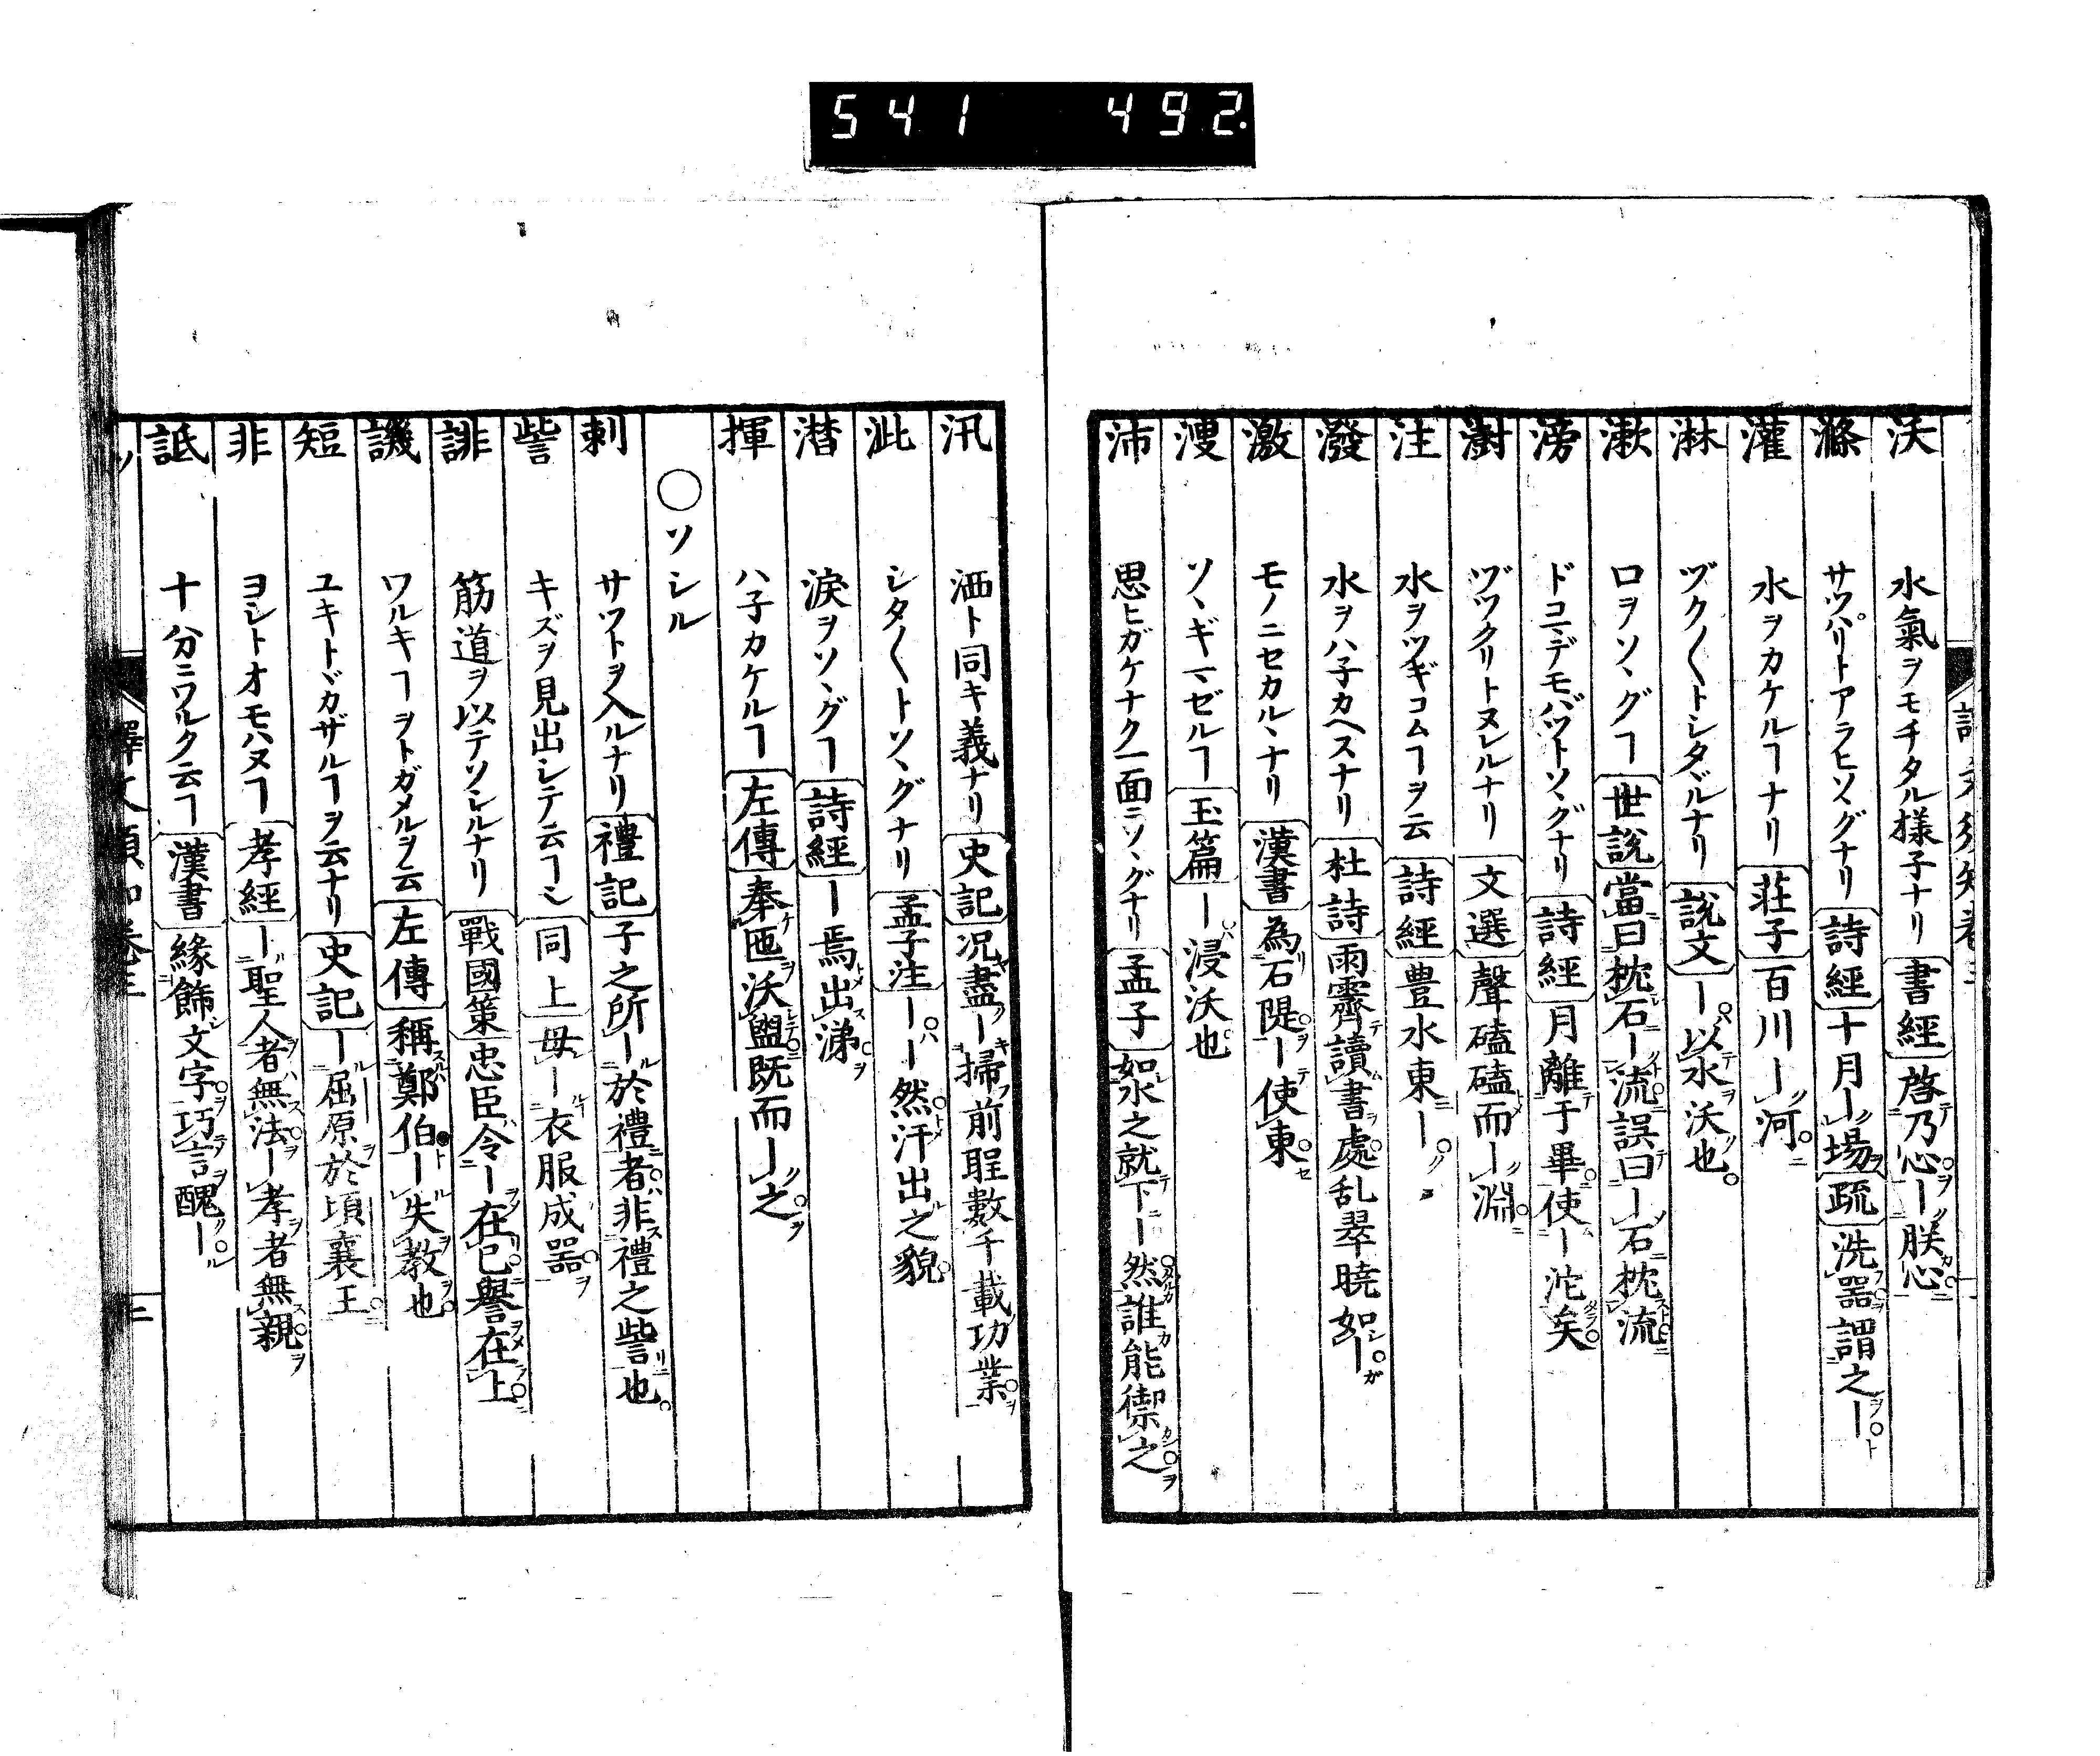 541 492.
沃 水氣ヲモチタル様子ナリ 書經 啓乃心ー朕心
滌 サッパリトアラヒソヽグナリ 詩經 十月ー場 疏 洗器謂之ー
灌 水ヲカケルヿナリ 荘子 百川ー河
淋 ヅク〱トシタヾルナリ 說文 ー以水沃也
漱 口ヲソヽグヿ 世説 當曰枕石ー流誤曰ー石枕流
滂 ドコニデモバットソヽグナリ 詩經 月離于畢使ー沱矣
澍 ヅックリトヌレルナリ 文選 聲磕磕而ー淵
注 水ヲツギコムヿヲ云 詩經 豊水東ー
潑 水ヲハ子カヘスナリ 杜詩 雨霽讀書處乱翠曉如ー
激 モノニセカルヽナリ 漢書 為石隄ー使東
溲 ソヽギマゼルヿ 玉篇 ー浸沃也
沛 思ヒガケナク一面ニソヽグナリ 孟子 如水之就下ー然誰能禦之
汛 洒ト同キ義ナリ 史記 况盡ー掃前聖數千載功業
泚 シタ〱トソヽグナリ 孟子注 ーー然汗出之貌
潸 涙ヲソヽグヿ 詩經 ー焉出涕
揮 ハ子カケルヿ 左傳 奉匜沃盥既而ー之
○ソシル
刺 サワトヲ入ルナリ 禮記 子之所ー於禮者非禮之訾也
訾 キズヲ見出シテ云ヿシ 同上 毋ー衣服成器
誹 筋道ヲ以テソシルナリ 戰國策 忠臣令ー在己譽在上
譏 ワルキヿヲトガメルヲ云 左傳 稱鄭伯ー失教也
短 ユキトヾカザルヿヲ云ナリ 史記 ー屈原於頃襄王
非 ヨシトオモハヌヿ 孝經 ー聖人者無法ー孝者無親
詆 十分ニワルク云ヿ 漢書 緣飾文字巧言醜ー